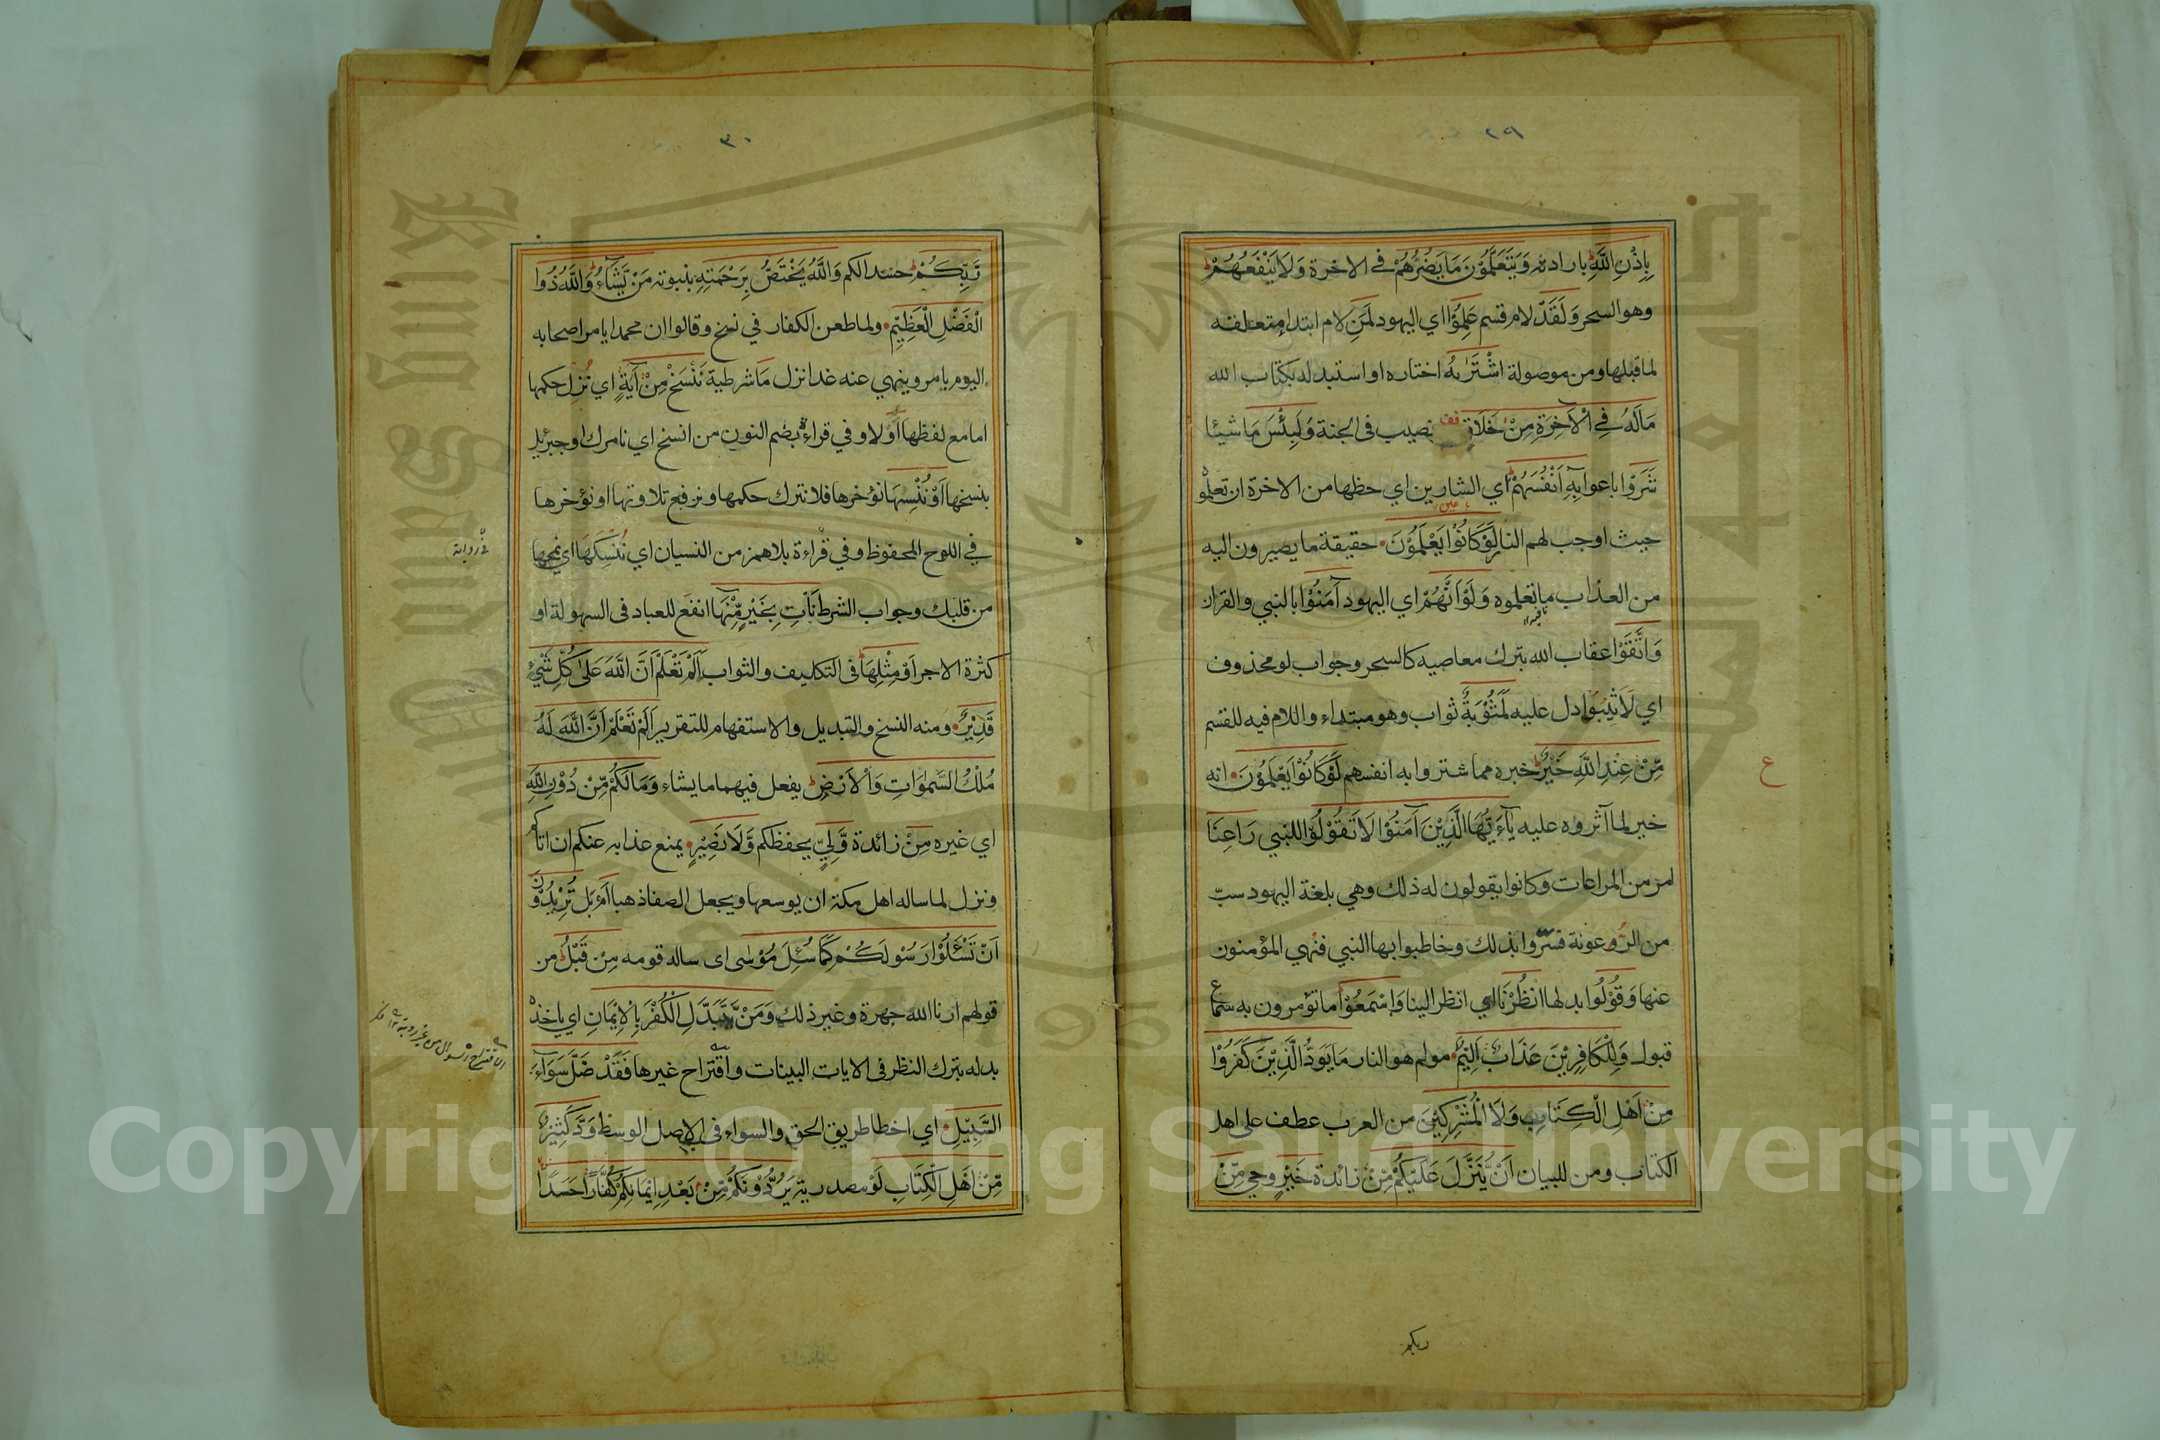 ٢٩
بِاِذْنِ اللَّهِ بارادته وَيَتَعَلَّمُوْنَ مَا يَضُرُّهُمْ في الاخرة وَلَا يَنْفَعُهُمْ
وهو السحر وَلَقَدْ لام قسم عَلِمُوْا اي اليهود لَمَنِ لام ابتداء متعلقة
لما قبلها ومن موصولة اشْتَرٰىهُ اختاره او استبدله بكتاب الله
مَالَهُ فِي الْاٰخِرَةِ مِنْ خَلَاقٍ نصيب في الجنة وَلَبِئْسَ مَا شيئا
شَرَوْا باعوا بِهٖ اَنْفُسَهُمْ اي الشارين اي حظها من الاخرة ان تعلموه
حيث اوجب لهم النار لَوْ كَانُوْا يَعْلَمُوْنَ حقيقة ما يصيرون اليه
من العذاب ما تعلموه وَلَوْ اَنَّهُمْ اي اليهود آمَنُوْا بالنبي والقران
وَاتَّقَوْا عقاب الله بترك معاصيه كالسحر وجواب لو محذوف
اي لَاُثِيْبُوا دل عليه لَمَثُوْبَةٌ ثواب وهو مبتداء واللام فيه للقسم
مِّنْ عِنْدِ اللَّهِ خَيْرٌ خبره مما شتروا به انفسهم لَوْ كَانُوْا يَعْلَمُوْنَ انه
خير لما آثروه عليه يٰاَيُّهَا الَّذِيْنَ آمَنُوْا لَا تَقُوْلُوْا للنبي رَاعِنَا
امر من المراعات وكانوا يقولون له ذلك وهي بلغة اليهود سبّ
من الرعونة فسرّوا بذلك وخاطبوا بها النبي فنهي المؤمنون
عنها وَقُوْلُوا بدلها انْظُرْنَا اي انظر الينا وَاسْمَعُوْا ما تؤمرون به سماع
قبول وَلِلْكَافِرِيْنَ عَذَابٌ اَلِيْمٌ مولم هو النار مَا يَوَدُّ الَّذِيْنَ كَفَرُوْا
مِنْ اَهْلِ الْكِتَابِ وَلَا الْمُشْرِكِيْنَ من العرب عطف على اهل
الكتاب ومن للبيان اَنْ يُّنَزَّلَ عَلَيْكُمْ مِّنْ زائدة خَيْرٍ وحي مِّنْ
ع
ربكم
٣٠
رَّبِّكُمْ حسدا لكم وَاللَّهُ يَخْتَصُّ بِرَحْمَتِهٖ بنبوته مَنْ يَّشَآءُ وَاللَّهُ ذُوا
الْفَضْلِ الْعَظِيْمِ ولما طعن الكفار في نسخ وقالوا ان محمدا يامر اصحابه
اليوم يامر وينهي عنه غدا نزل مَا شرطية نَنْسَخْ مِنْ اٰيَةٍ اي نزل حكمها
اما مع لفظها اولا وفي قراءة بضم النون من انسخ اي نامرك او جبرئيل
بنسخها اَوْ نُنْسِهَا نؤخرها فلا نترك حكمها ونرفع تلاوتها او نؤخرها
في اللوح المحفوظ وفي قراءة بلا همز من النسيان اي نُنْسِكَهَا اي نمحها
من قلبك وجواب الشرط نَأْتِ بِخَيْرٍ مِّنْهَا انفع للعباد في السهولة او
كثرة الاجر اَوْ مِثْلِهَا في التكليف والثواب اَلَمْ تَعْلَمْ اَنَّ اللَّهَ عَلٰى كُلِّ شَيْءٍ
قَدِيْرٌ ومنه النسخ والتبديل والاستفهام للتقرير اَلَمْ تَعْلَمْ اَنَّ اللَّهَ لَهُ
مُلْكُ السَّمٰوَاتِ وَالْاَرْضِ يفعل فيهما ما يشاء وَمَا لَكُمْ مِّنْ دُوْنِ اللَّهِ
اي غيره مِنْ زائدة وَّلِيٍّ يحفظكم وَّلَا نَصِيْرٍ يمنع عذابه عنكم ان اتاكم
ونزل لما ساله اهل مكة ان يوسعها ويجعل الصفا ذهبا اَمْ بل تُرِيْدُوْنَ
اَنْ تَسْئَلُوْا رَسُوْلَكُمْ كَمَا سُئِلَ مُوْسٰى اى ساله قومه مِنْ قَبْلُ من
قولهم ارنا الله جهرة وغير ذلك وَمَنْ يَّتَبَدَّلِ الْكُفْرَ بِالْاِيْمَانِ اي ياخذ
بدله بترك النظر في الايات البينات واقتراح غيرها فَقَدْ ضَلَّ سَوَآءَ
السَّبِيْلِ اي اخطا طريق الحق والسواء في الاصل الوسط وَدَّ كَثِيْرٌ
مِّنْ اَهْلِ الْكِتَابِ لَوْ مصدرية يَرُدُّوْنَكُمْ مِّنْ بَعْدِ اِيْمَانِكُمْ كُفَّارًا حَسَدًا
Copyright © King Saud University
King Saud University